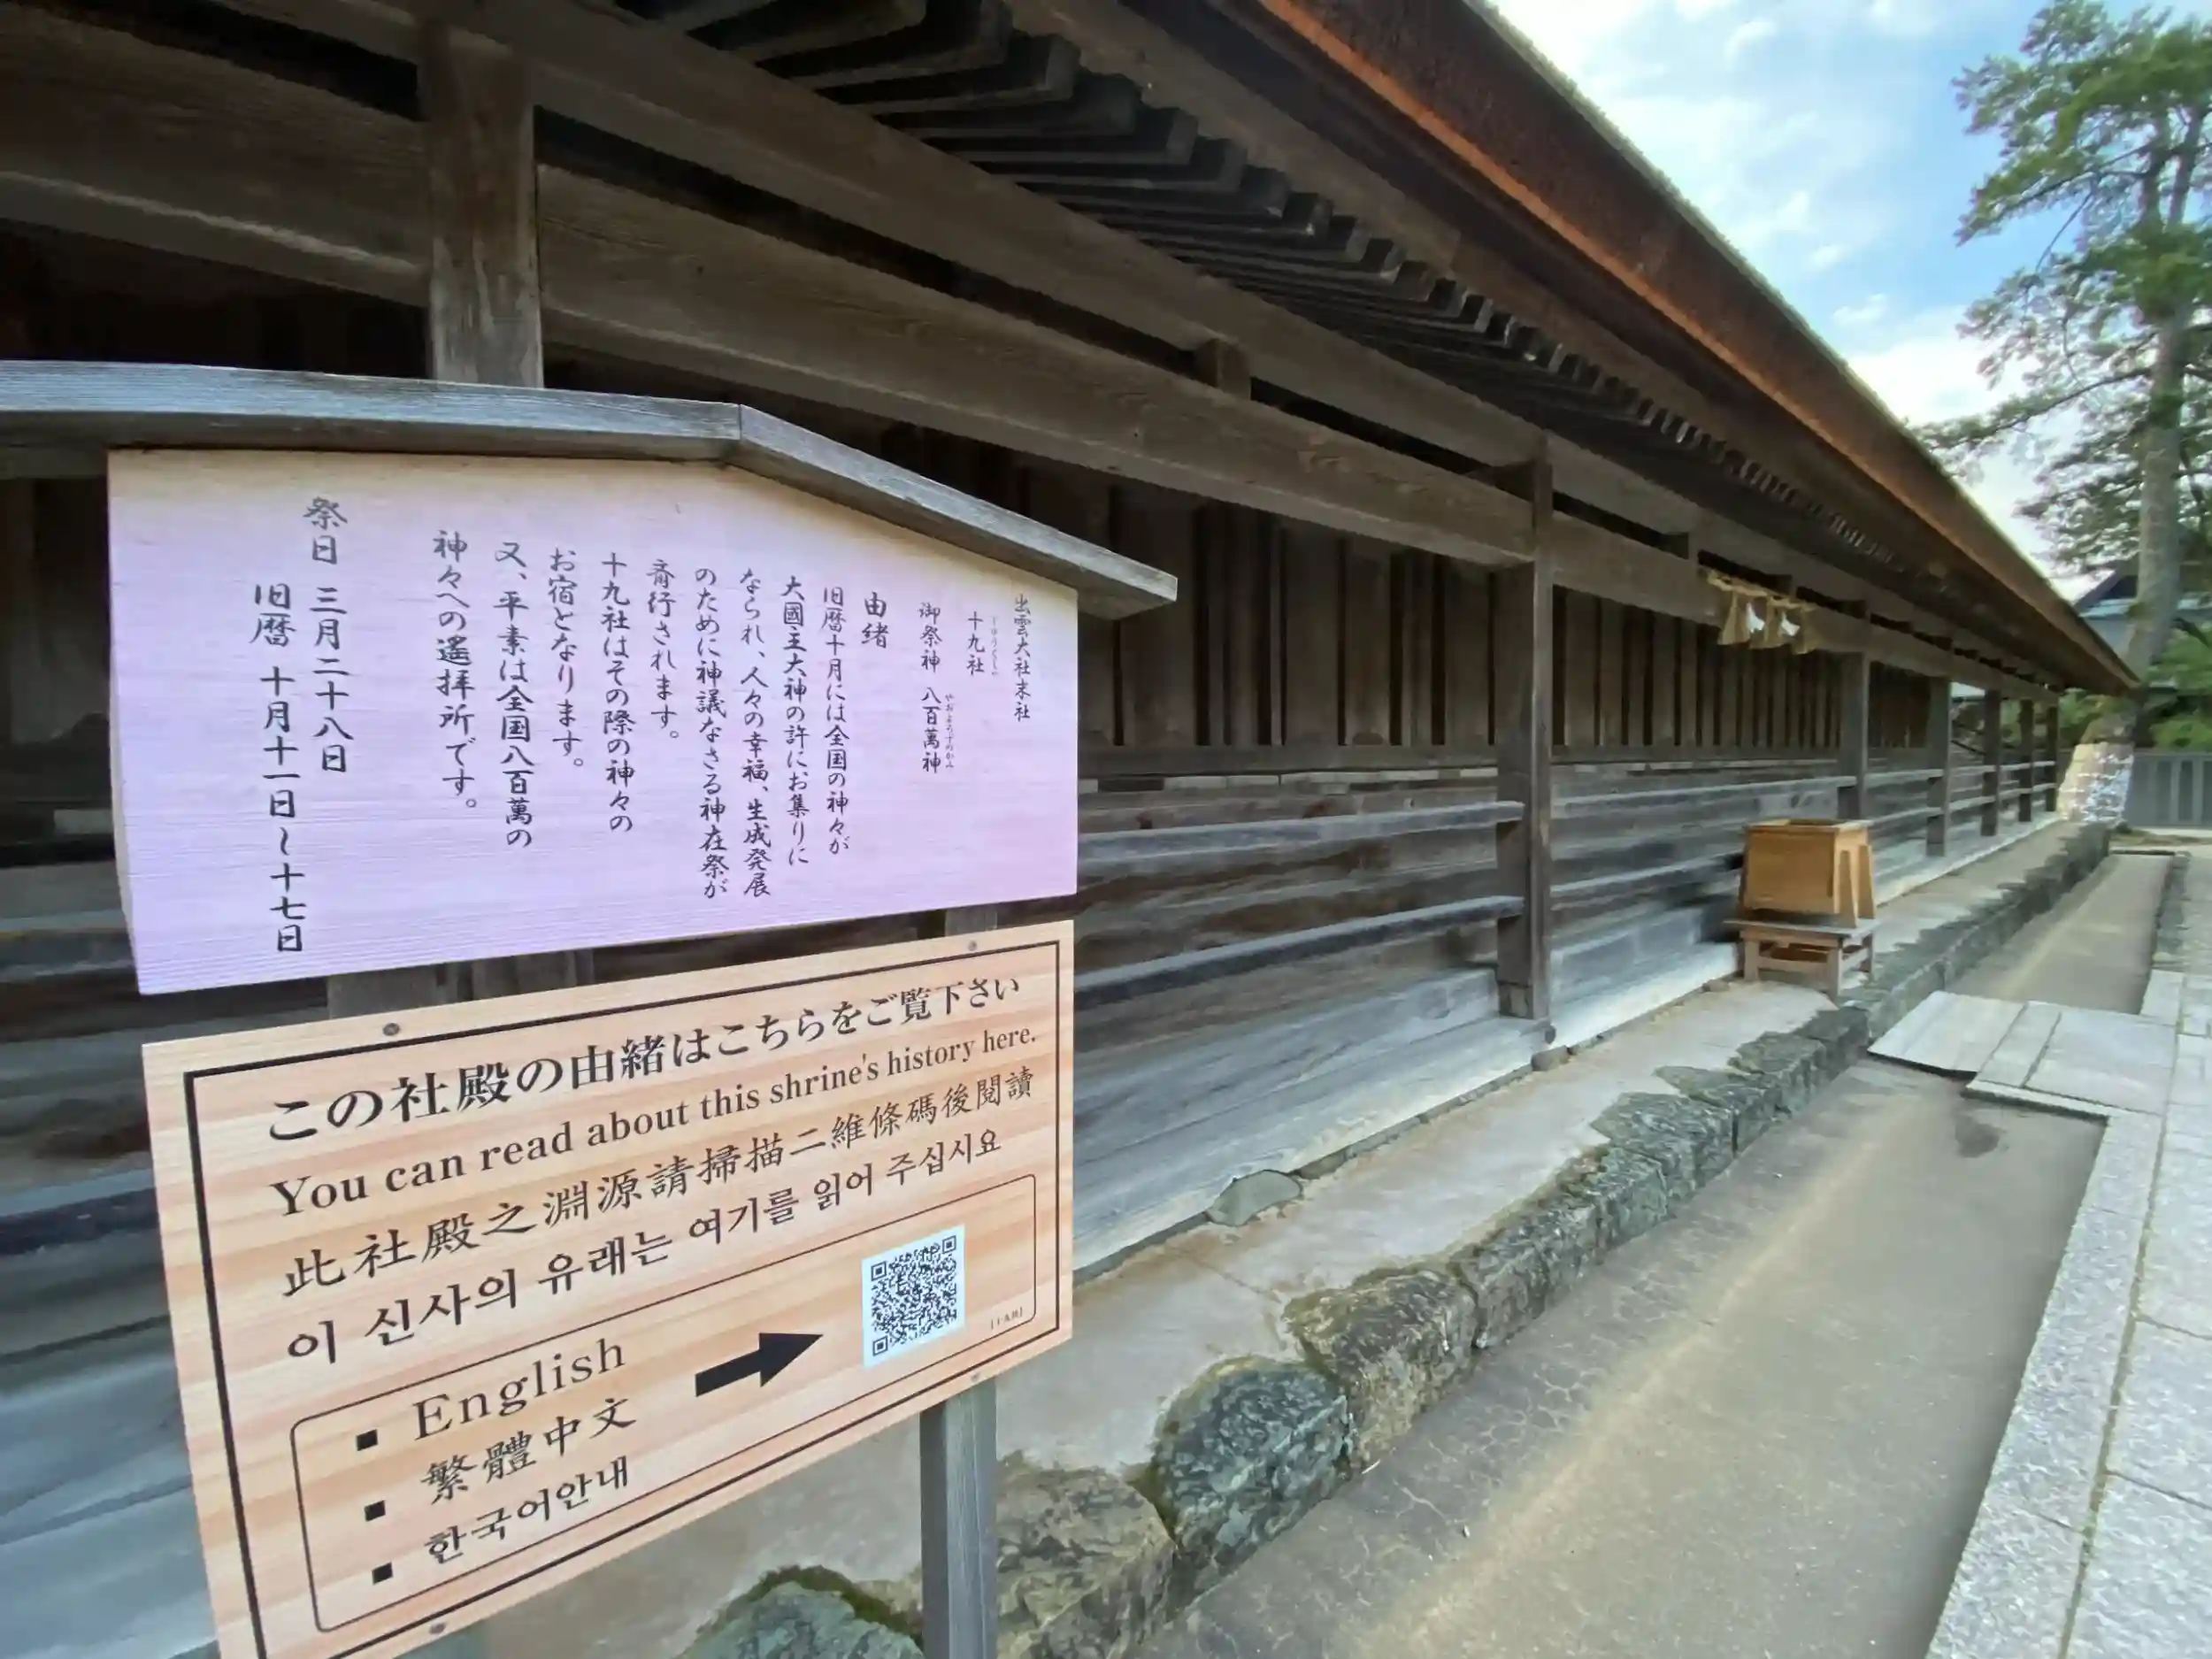 出雲大社末社
十九社
じゅうくしゃ
御祭神 八百萬神
やおよろずのかみ
由緒
旧暦十月には全国の神々が
大國主大神の許にお集りに
なられ、人々の幸福、生成発展
のために神議なさる神在祭が
斎行されます。
十九社はその際の神々の
お宿となります。
又、平素は全国八百萬の
神々への遙拝所です。
祭日 三月二十八日
旧暦 十月十一日～十七日
この社殿の由緒はこちらをご覧下さい
You can read about this shrine's history here.
此社殿之淵源請掃描二維條碼後閱讀
이 신사의 유래는 여기를 읽어 주십시요
▪ English
▪ 繁體中文
▪ 한국어안내
[十九社]